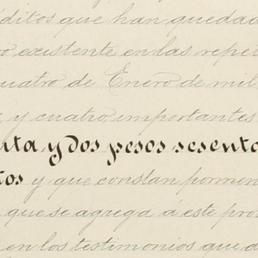 éditos que han quedad
o existente en las repe
cuatro de Enero de mil
y cuatro importantes
nta y dos pesos sesent
tos y que constan pormen
que se agrega á este pro
en los testimonios que d